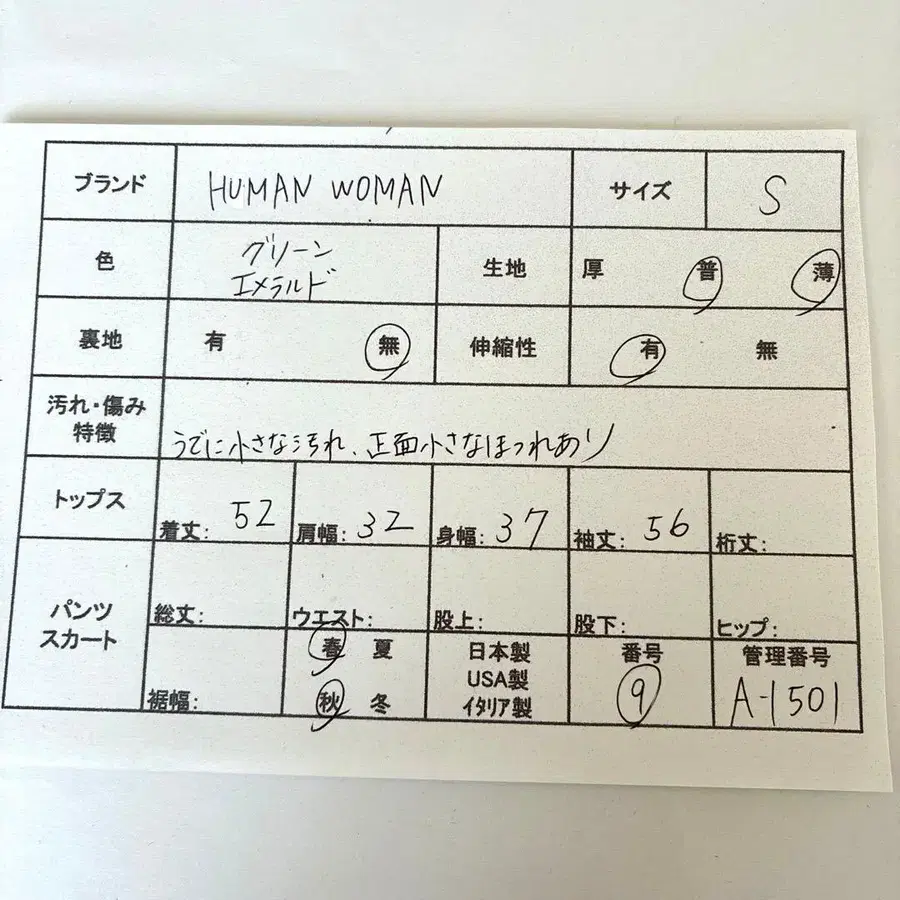 ブランド HUMAN WOMAN サイズ S
色 グリーン
エメラルド
生地 厚 普 薄
裏地 有 無 伸縮性 有 無
汚れ・傷み
特徴
うでに小さな汚れ、正面小さなほつれあり
トップス 着丈: 52 肩幅: 32 身幅: 37 袖丈: 56 桁丈:
パンツ
スカート
総丈: ウエスト: 股上: 股下: ヒップ:
裾幅:
春 夏
秋 冬
日本製
USA製
イタリア製
番号
9
管理番号
A-1501